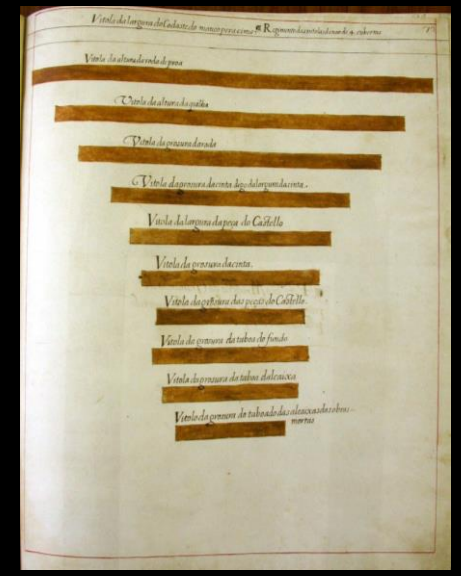 Vitola da largura do Cadaste do
¶ Regimento das vitolas da nao de 4 cubertas
Vitola da altura da roda de proa
Vitola da altura da quilha
Vitola da grosura da roda
Vitola da grosura da cinta digo da largura da cinta.
Vitola da largura da peça do Castello
Vitola da grosura da cinta.
Vitola da grosura das peças do Castello.
Vitola da grosura do taboa do fundo
Vitola da grosura do taboa da lcaixa
Vitola da grosura do taboado das alcaixas das obras
mortas